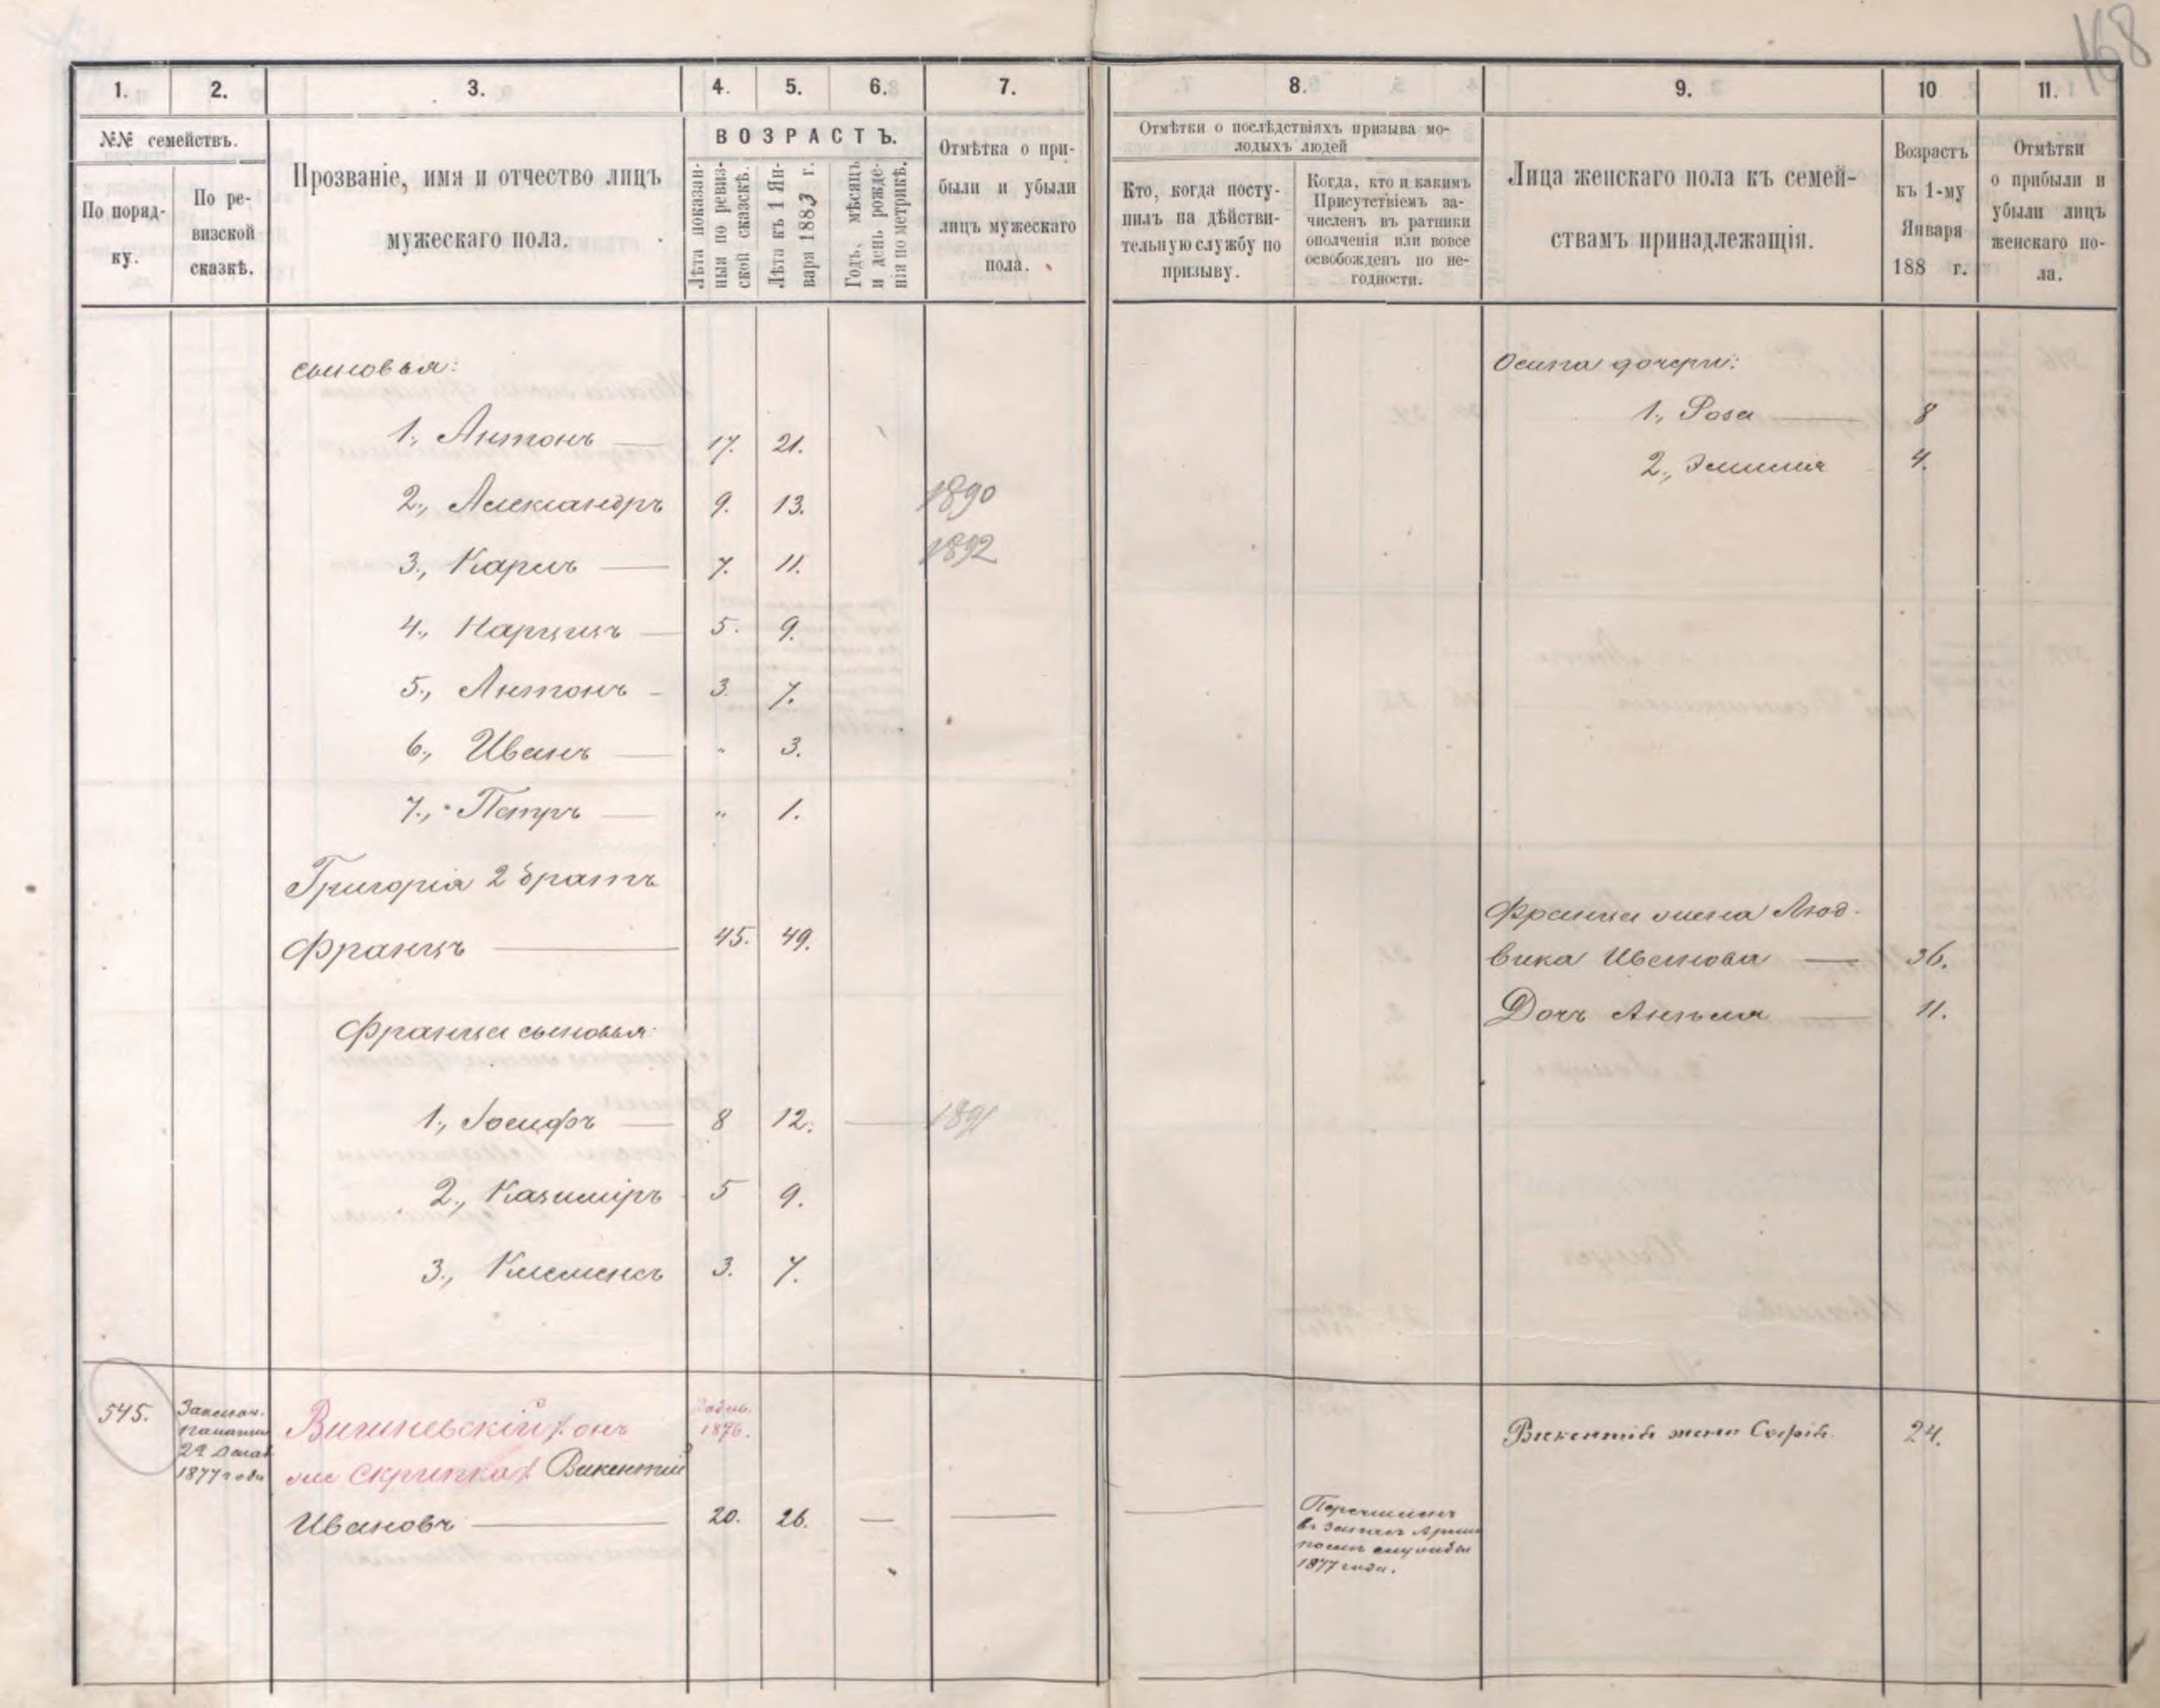 168
1. 2. 3. 4. 5. 6. 7. 8. 9. 10 11.
№№ семействъ.
По поряд-
ку.
По ре-
визской
сказкѣ.
Прозваніе, имя и отчество лицъ
мужескаго пола.
ВОЗРАСТЪ.
Лѣта показан-
ныя по ревиз-
ской сказскѣ.
Лѣта къ 1 Ян-
варя 1883 г.
Годъ, мѣсяцъ
и день рожде-
нія по метрикѣ.
Отмѣтка о при-
были и убыли
лицъ мужескаго
пола.
Отмѣтки о послѣдствіяхъ призыва мо-
лодыхъ людей
Кто, когда посту-
пилъ на дѣйстви-
тельную службу по
призыву.
Когда, кто и какимъ
Присутствіемъ за-
численъ въ ратники
ополченія или вовсе
освобожденъ по не-
годности.
Лица женскаго пола къ семей-
ствамъ принадлежащія.
Возрастъ
къ 1-му
Января
188 г.
Отмѣтки
о прибыли и
убыли лицъ
женскаго по-
ла.
сыновья:
1., Антонъ — 17. 21.
2., Александръ 9. 13. 1890
3., Карлъ — 7. 11. 1892
4., Нарцизъ — 5. 9.
5., Антонъ - 3. 7.
6., Иванъ — " 3.
7., Петръ — " 1.
Григорія 2 братъ
Францъ — 45. 49.
Франца сыновья:
1., Іосифъ — 8 12. — 1891
2., Казиміръ 5 9.
3., Клеменсъ 3. 7.
Осипа дочери:
1., Роза — 8
2., Эмилія 4.
Франца жена Люд-
вика Иванова — 36.
Дочь Анѣля — 11.
545.
29
1877 года
Вишневскій /: онъ
же Скрипка /: Викентій
Ивановъ — 20. 26. — —
1876.
—
въ запасъ Арміи
1877 года.
Викентія жена Софія 24.